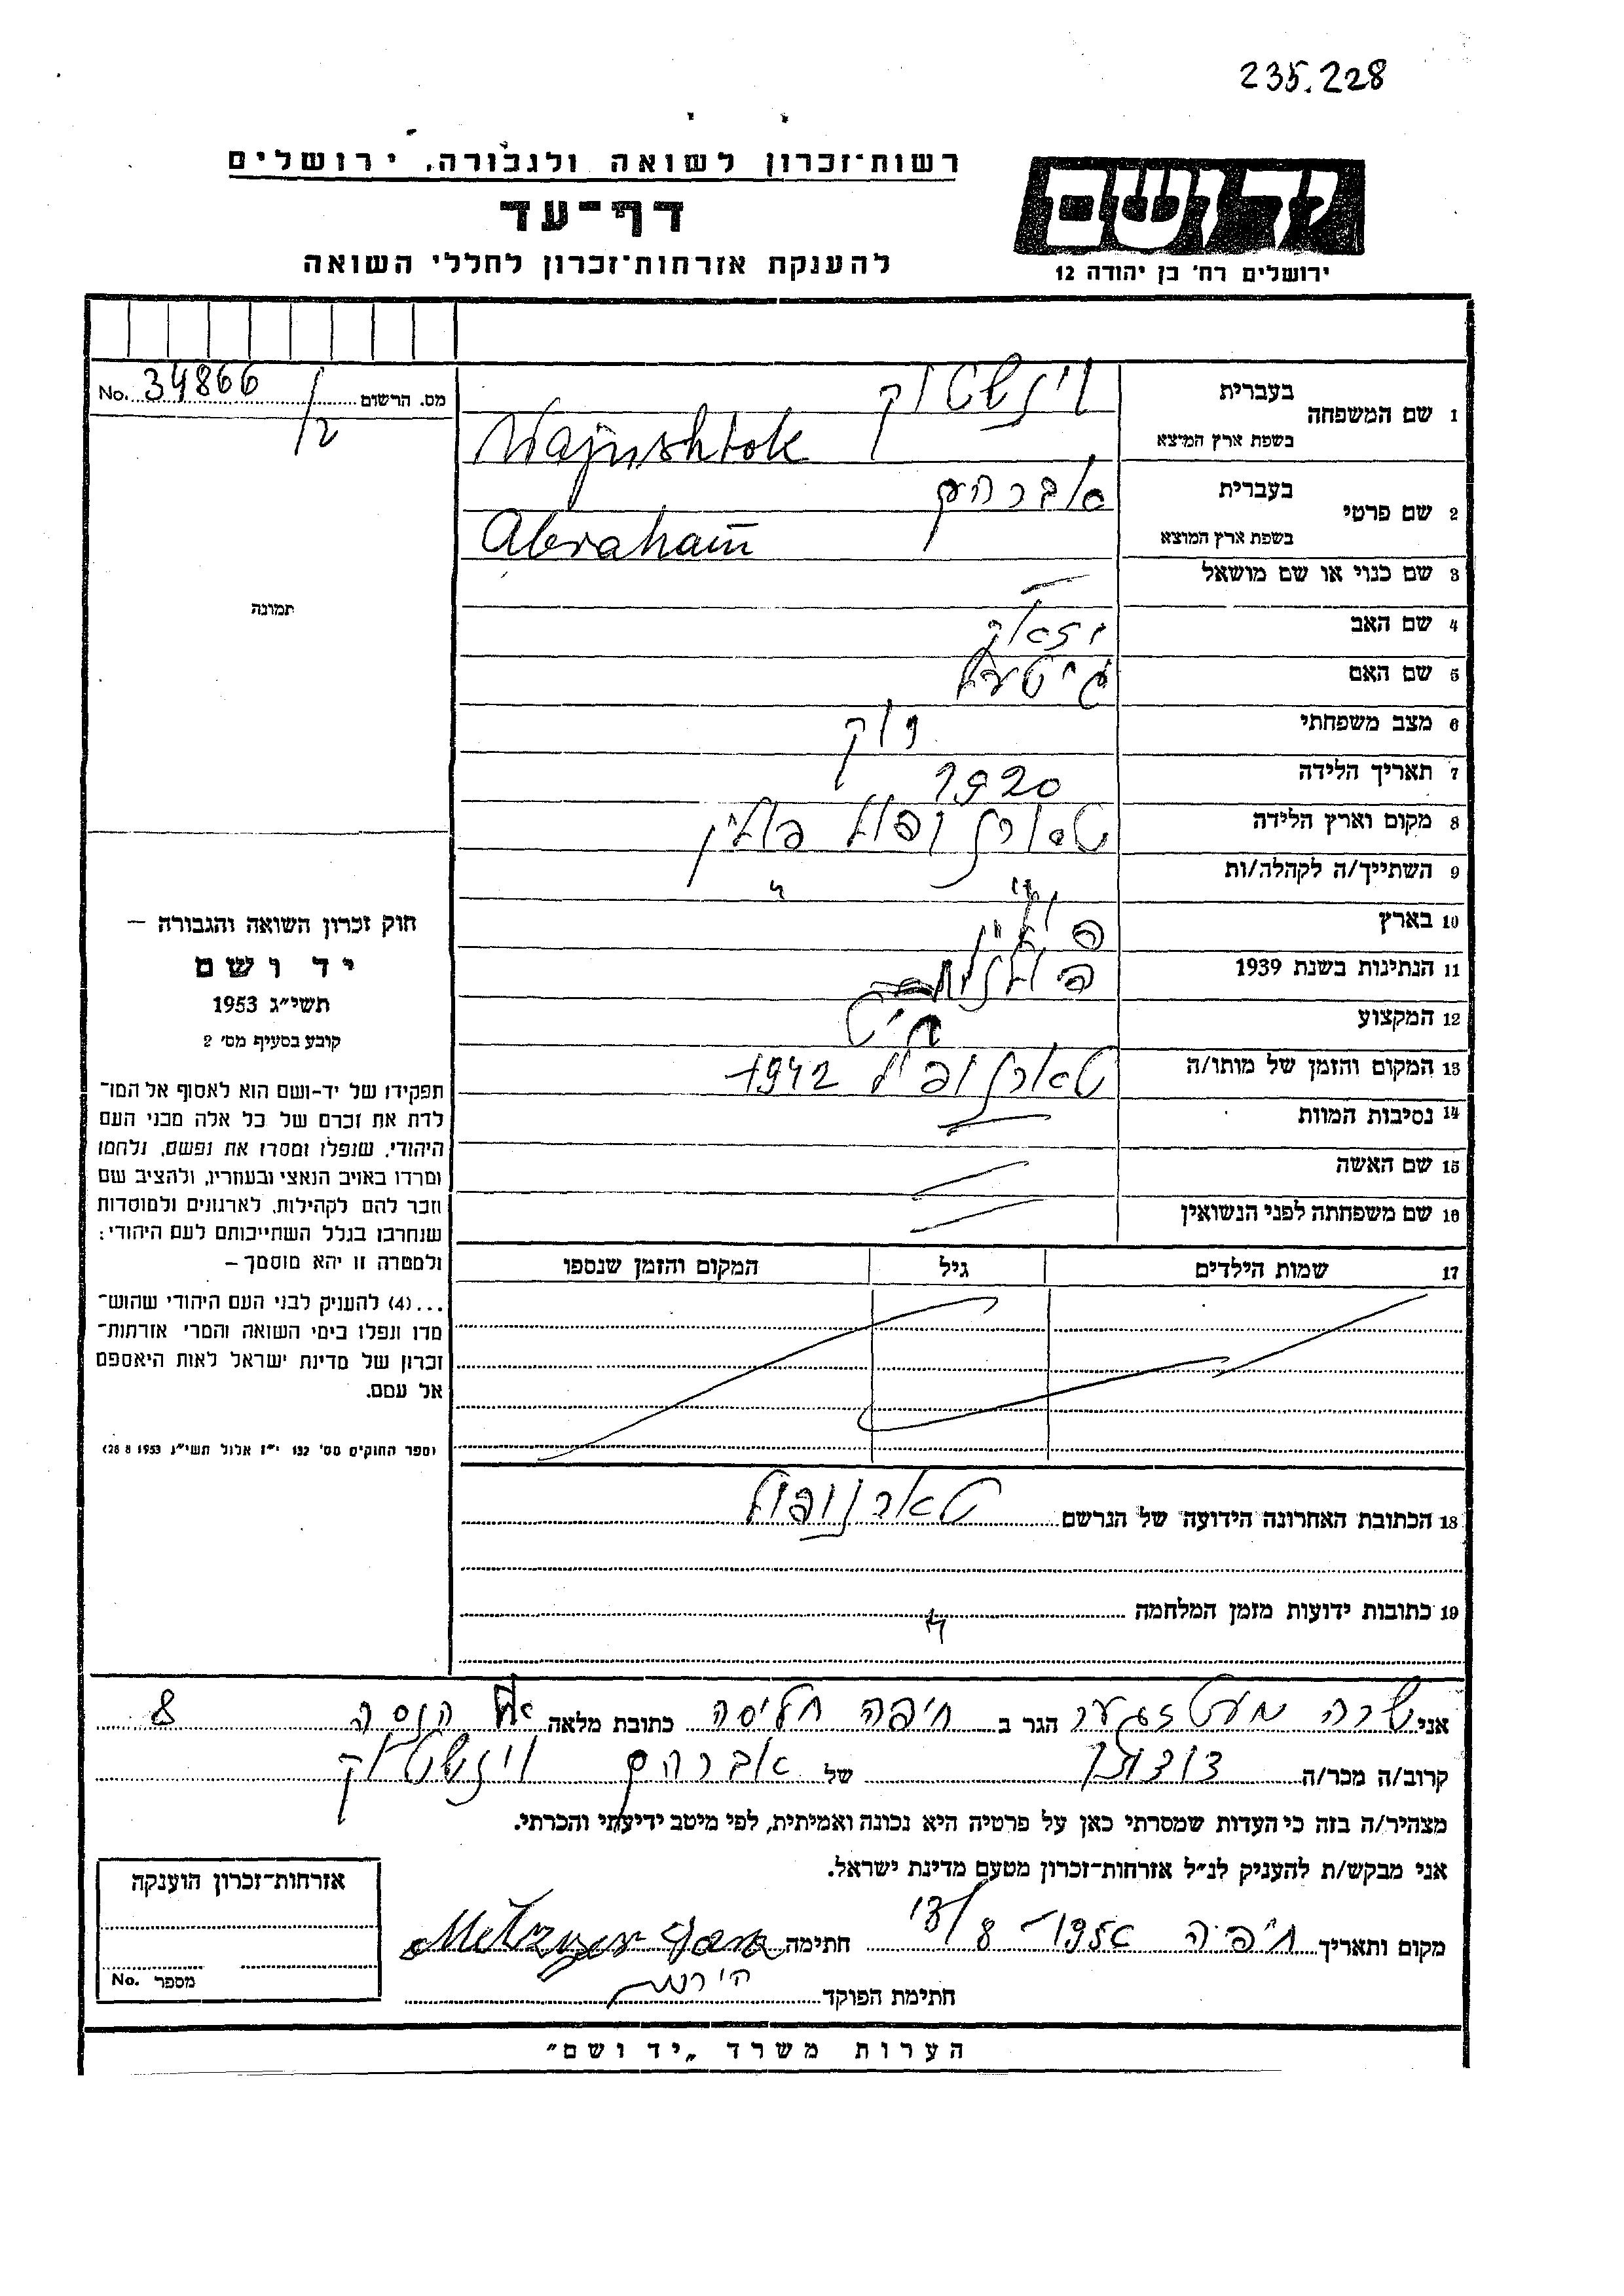 235.228
רשות־זכרון לשואה ולגבורה, ירושלים
דף־עד
להענקת אזרחות־זכרון לחללי השואה
ידושם
ירושלים רח' בן יהודה 12
מס. הרשום 34866 .No
1 שם המשפחה
בעברית וינשטוק
בשפת ארץ המוצא Wajnshtok
2 שם פרטי
בעברית אברהם
בשפת ארץ המוצא Abraham
3 שם כנוי או שם מושאל
4 שם האב יצאק
5 שם האם גיטעל
6 מצב משפחתי
7 תאריך הלידה 1920
8 מקום וארץ הלידה טארנופול פולין
9 השתייך/ה לקהלה/ות " "
10 בארץ פולין
11 הנתינות בשנת 1939
12 המקצוע
13 המקום והזמן של מותו/ה טארנופול 1942
14 נסיבות המוות
15 שם האשה
16 שם משפחתה לפני הנשואין
17 שמות הילדים גיל המקום והזמן שנספו
18 הכתובת האחרונה הידועה של הנרשם טארנופול
19 כתובות ידועות מזמן המלחמה "
תמונה
חוק זכרון השואה והגבורה –
יד ושם
תשי״ג 1953
קובע בסעיף מס' 2
תפקידו של יד-ושם הוא לאסוף אל המו־
לדת את זכרם של כל אלה מבני העם
היהודי, שנפלו ומסרו את נפשם, נלחמו
ומרדו באויב הנאצי ובעוזריו, ולהציב שם
וזכר להם לקהילות, לארגונים ולמוסדות
שנחרבו בגלל השתייכותם לעם היהודי:
ולמטרה זו יהא מוסמך –
...(4) להעניק לבני העם היהודי שהוש־
מדו ונפלו בימי השואה והמרי אזרחות־
זכרון של מדינת ישראל לאות היאספם
אל עמם.
(ספר החוקים מס' 132 י״ז אלול תשי״ג 28.8.1953)
אני שרה מעטזגער הגר ב חיפה חליסה כתובת מלאה 8
קרוב/ה מכר/ה של אברהם וינשטוק
מצהיר/ה בזה כי העדות שמסרתי כאן על פרטיה היא נכונה ואמיתית, לפי מיטב ידיעתי והכרתי.
אני מבקש/ת להעניק לנ״ל אזרחות־זכרון מטעם מדינת ישראל.
מקום ותאריך חיפה חתימה Metzger Sara
חתימת הפוקד
אזרחות־זכרון הוענקה
מספר .No
הערות משרד „יד ושם"